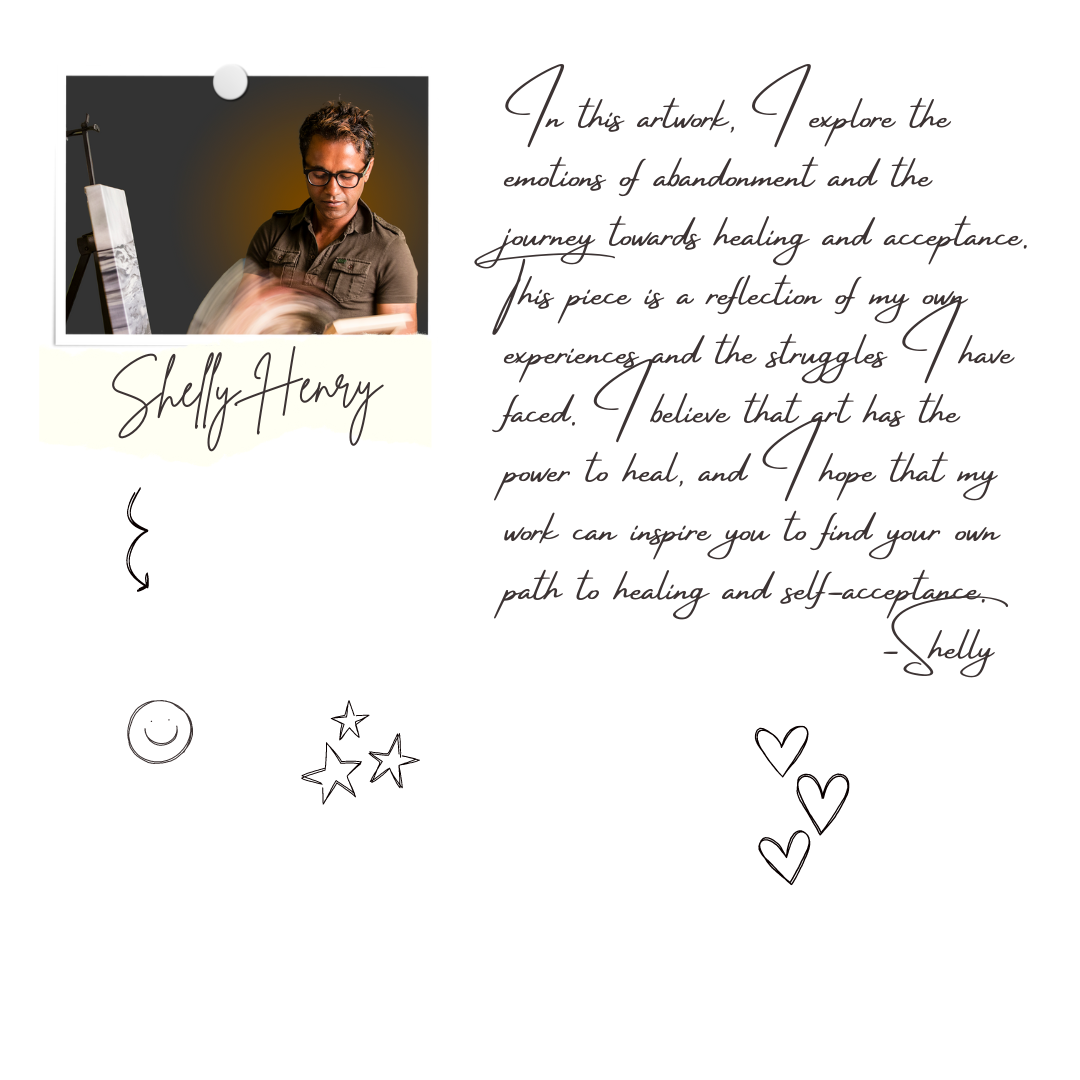 Shelly Henry
In this artwork, I explore the
emotions of abandonment and the
journey towards healing and acceptance.
This piece is a reflection of my own
experiences and the struggles I have
faced. I believe that art has the
power to heal, and I hope that my
work can inspire you to find your own
path to healing and self-acceptance.
-Shelly